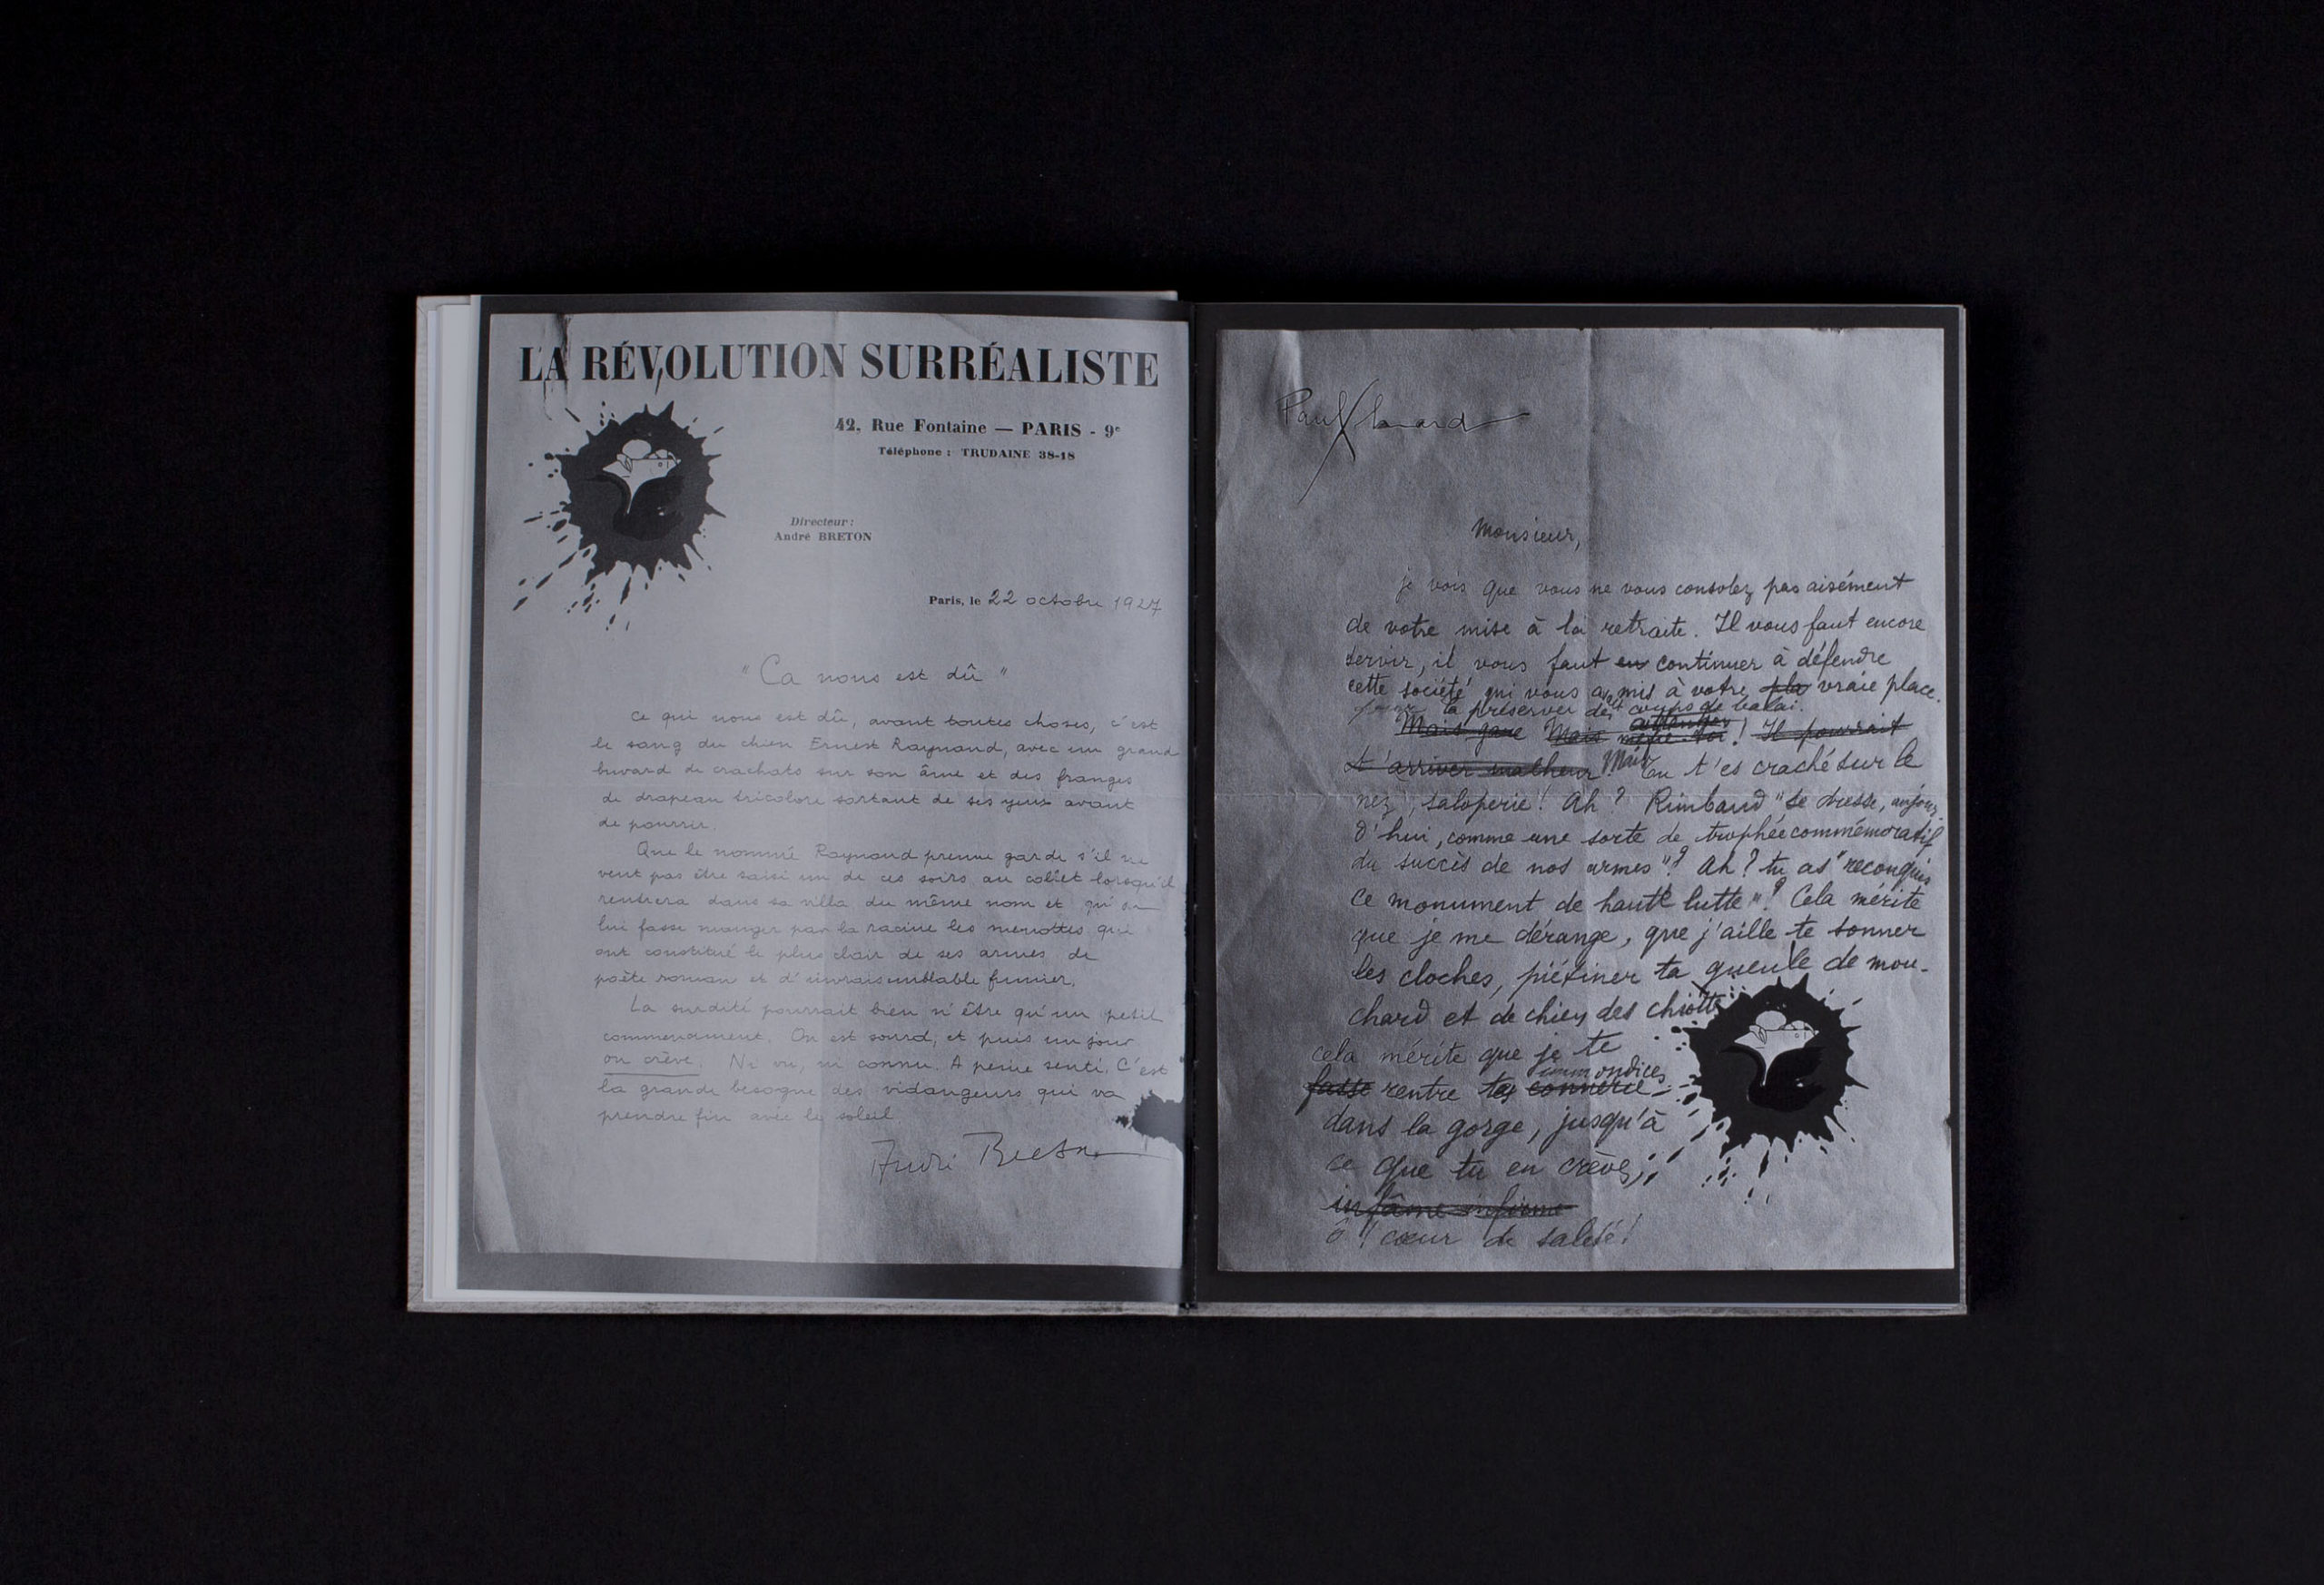 LA RÉVOLUTION SURRÉALISTE
42, Rue Fontaine — PARIS - 9e
Téléphone : TRUDAINE 38-18
Directeur :
André BRETON
Paris, le 22 octobre 1927
"Ca nous est dû"
Ce qui nous est dû, avant toutes choses, c'est
le sang du chien Ernest Raynaud, avec un grand
buvard de crachats sur son âme et des franges
de drapeau tricolore sortant de ses yeux avant
de pourrir.
Que le nommé Raynaud prenne garde s'il ne
veut pas être saisi un de ces soirs au collet lorsqu'il
rentrera dans sa villa du même nom et qu'on
lui fasse manger par la racine les menottes qui
ont constitué le plus clair de ses armes de
poète roman et d'invraisemblable fumier.
La surdité pourrait bien n'être qu'un petit
commencement. On est sourd, et puis un jour
on crève. Ni vu, ni connu. A peine senti. C'est
la grande besogne des vidangeurs qui va
prendre fin avec le soleil
André Breton
Paul Eluard
Monsieur,
je vois que vous ne vous consolez pas aisément
de votre mise à la retraite. Il vous faut encore
servir, il vous faut en continuer à défendre
cette société qui vous a mis à votre pla vraie place.
la préserver des coups de balai.
Mais gare Mais méfie-toi ! Il pourrait
t'arriver malheur Mais tu t'es craché sur le
nez, saloperie ! Ah ? Rimbaud "se dresse, aujour
d'hui, comme une sorte de trophée commémoratif
du succès de nos armes" ? Ah ? tu as "reconquis
ce monument de haute lutte" ? Cela mérite
que je me dérange, que j'aille te sonner
les cloches, piétiner ta gueule de mou-
chard et de chien des chiottes
cela mérite que je te
immondices
fasse rentre tes connerie
dans la gorge, jusqu'à
ce que tu en crèves,
infâme infirme
ô ! cœur de saleté !